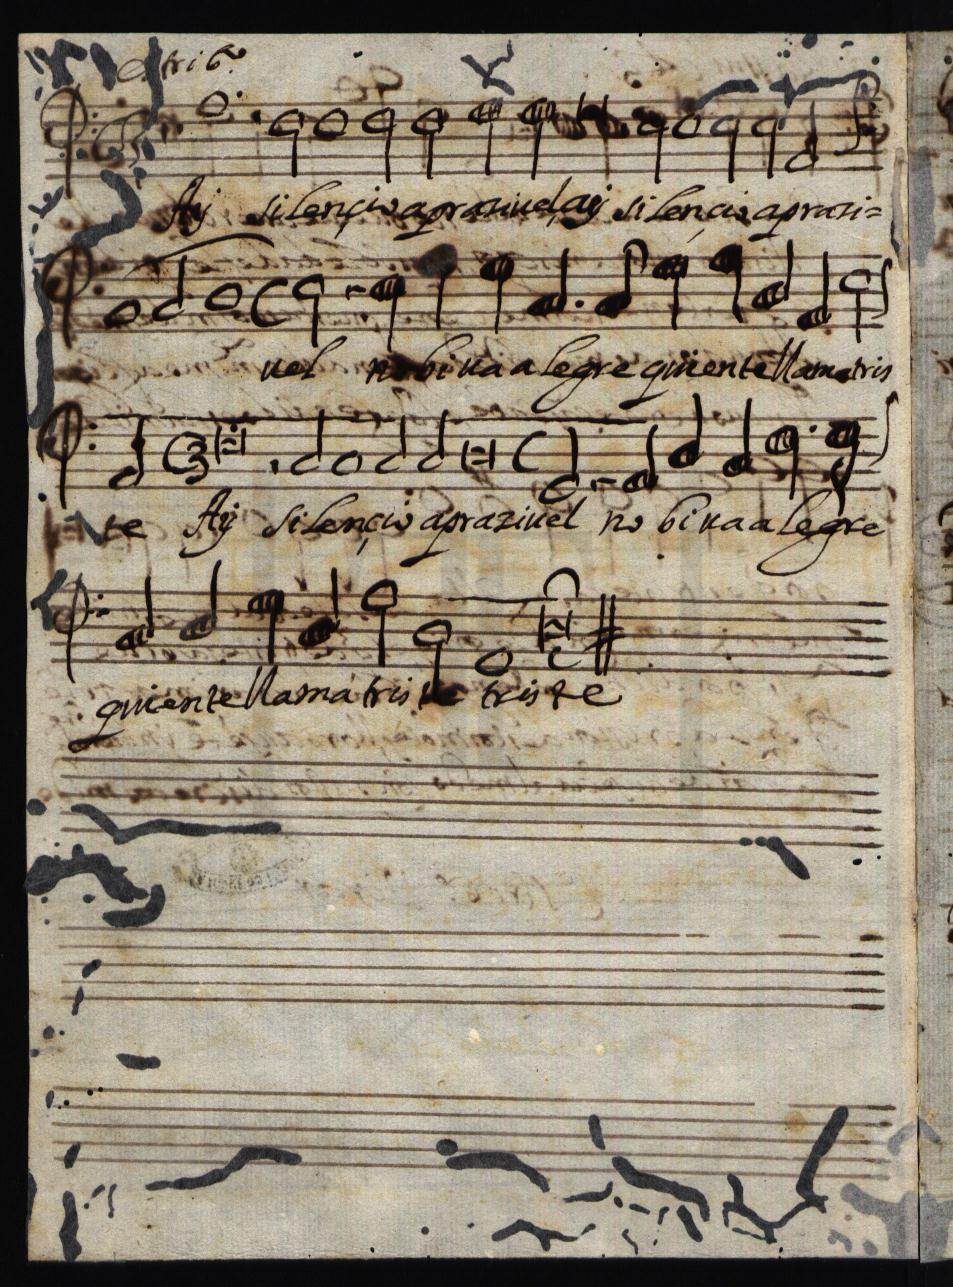 Ay silençio aprazivel, ay silençio aprazi=
vel no biva alegre quien te llama tris
te Ay silençio aprazivel no biva alegre
quien te llama triste triste